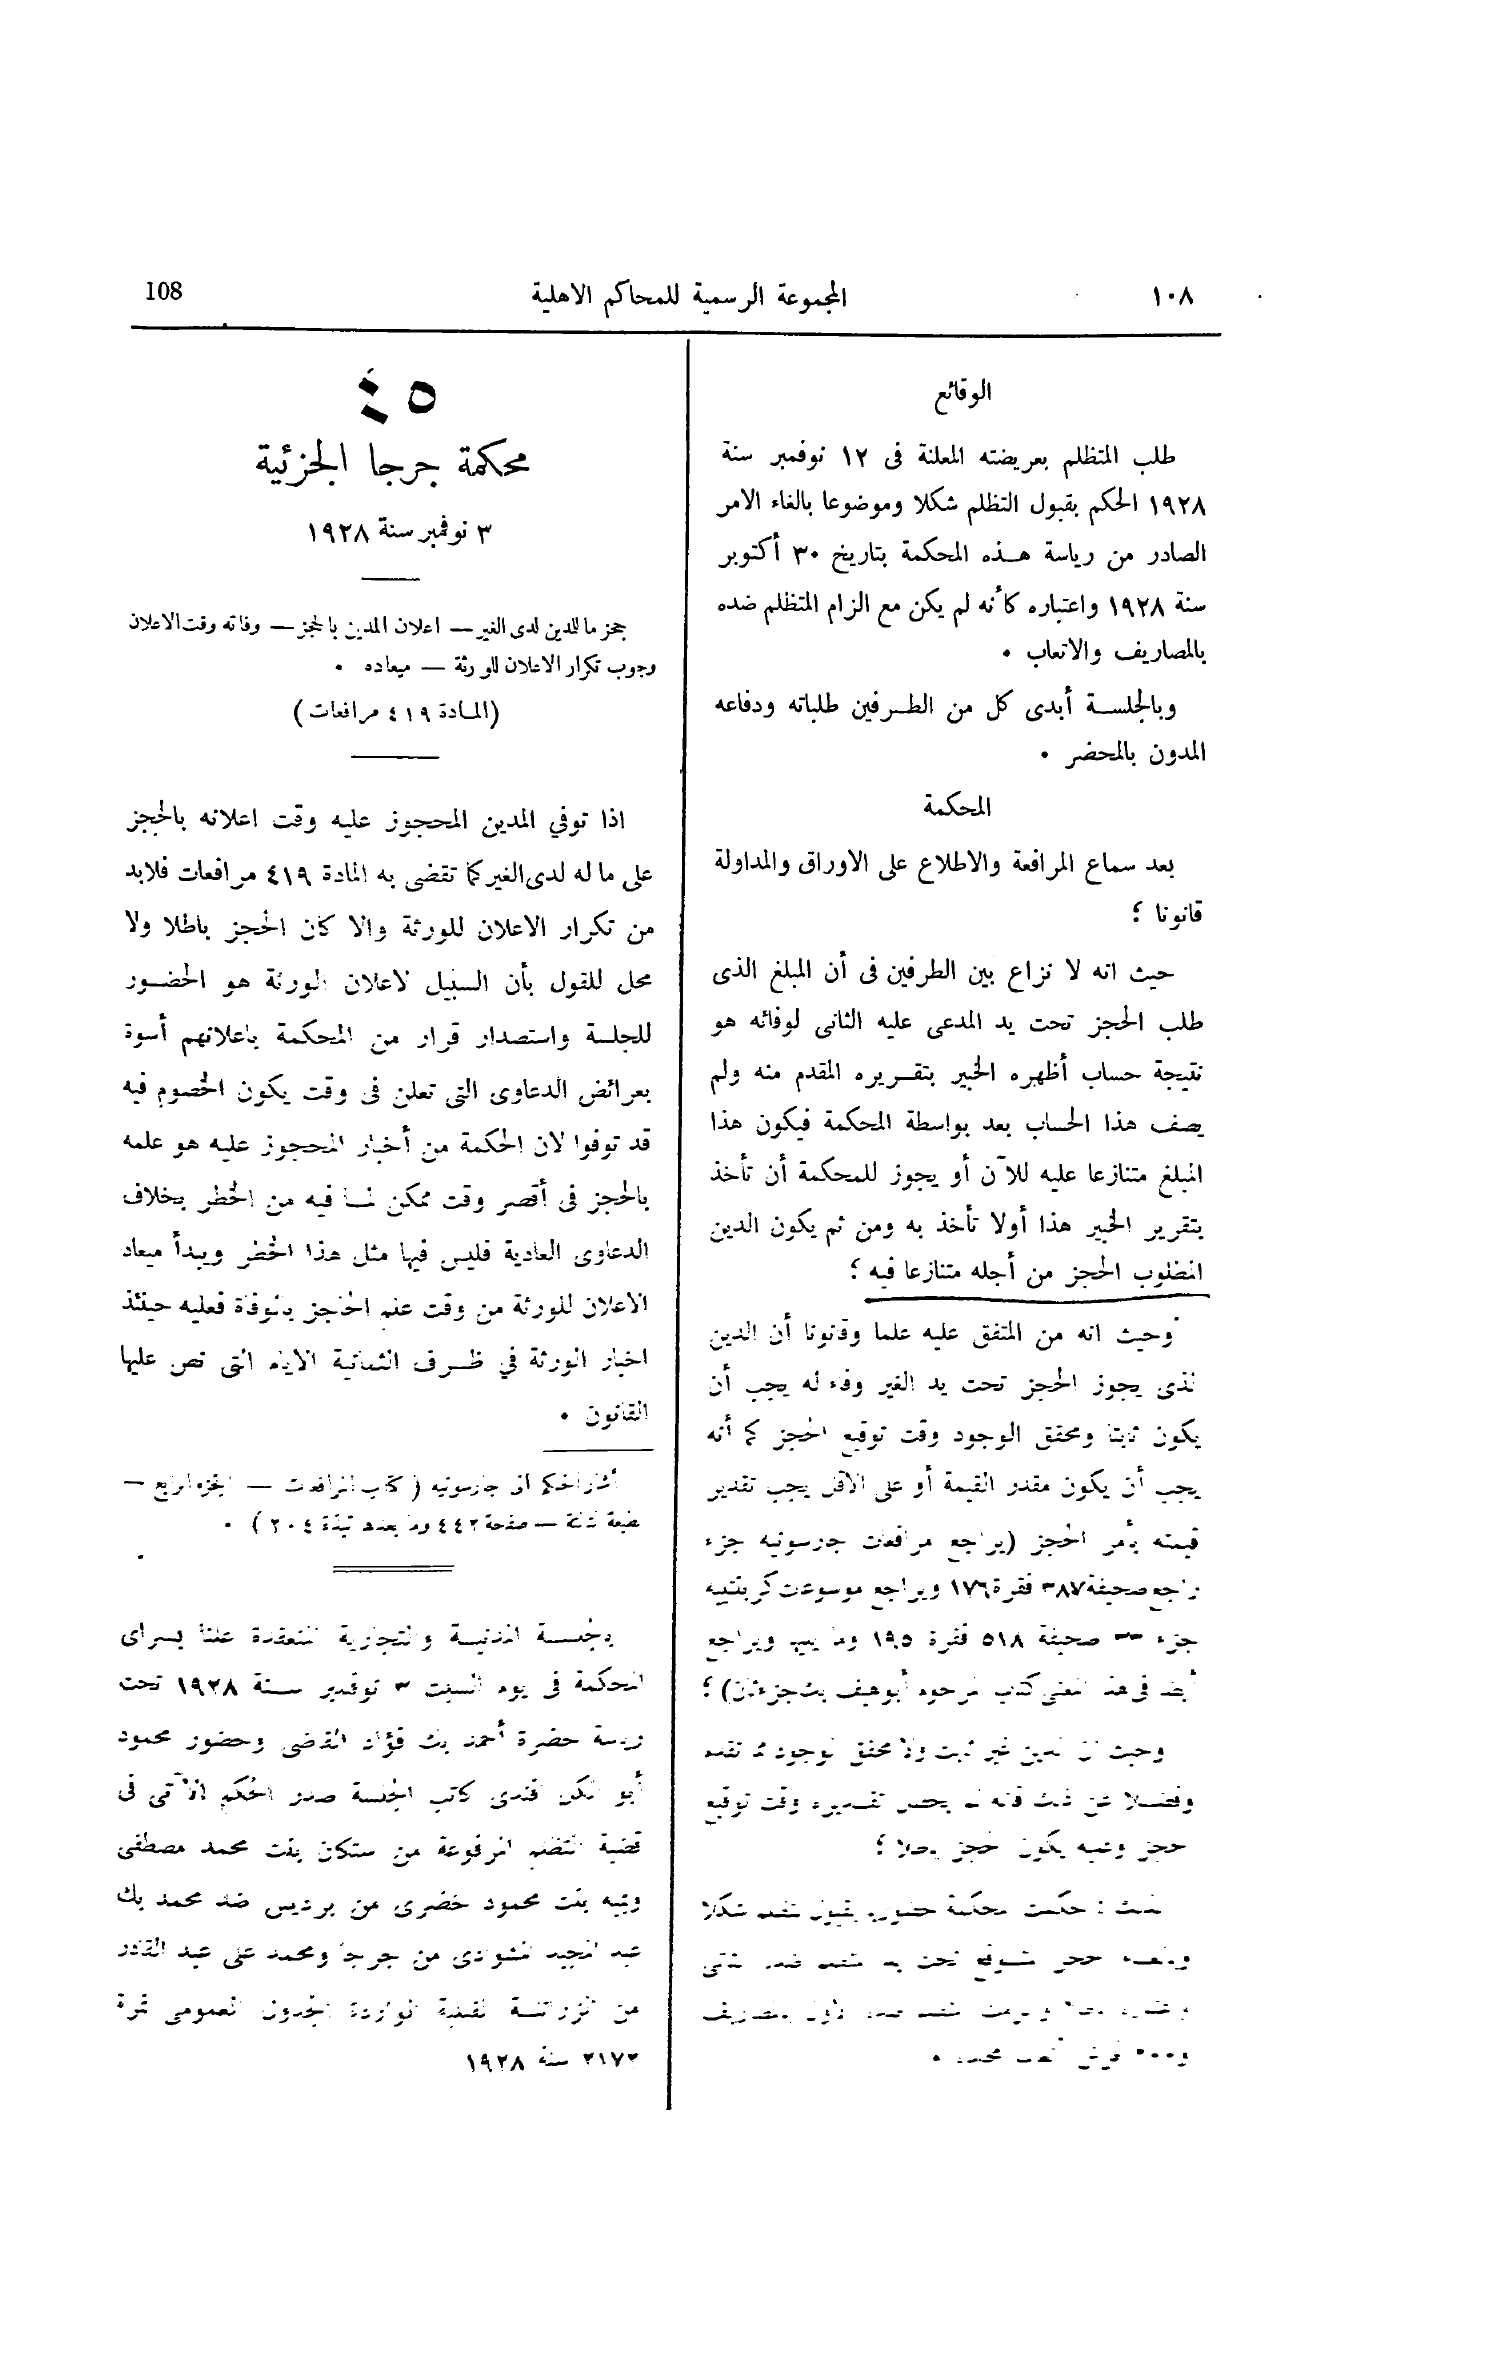 ١٠٨
المجموعة الرسمية للمحاكم الاهلية
108
الوقائع
طلب المتظلم بعريضته المعلنة فى ١٢ نوفمبر سنة
١٩٢٨ الحكم بقبول التظلم شكلا وموضوعا بالغاء الامر
الصادر من رياسة هذه المحكمة بتاريخ ٣٠ أكتوبر
سنة ١٩٢٨ واعتباره كأنه لم يكن مع الزام المتظلم ضده
بالمصاريف والاتعاب .
وبالجلسة أبدى كل من الطرفين طلباته ودفاعه
المدون بالمحضر .
المحكمة
بعد سماع المرافعة والاطلاع على الاوراق والمداولة
قانونا ؛
حيث انه لا نزاع بين الطرفين فى أن المبلغ الذى
طلب الحجز تحت يد المدعى عليه الثانى لوفائه هو
نتيجة حساب أظهره الخبير بتقريره المقدم منه ولم
يصف هذا الحساب بعد بواسطة المحكمة فيكون هذا
المبلغ متنازعا عليه للآن أو يجوز للمحكمة أن تأخذ
بتقرير الخبير هذا أولا تأخذ به ومن ثم يكون الدين
المطلوب الحجز من أجله متنازعا فيه ؛
وحيث انه من المتفق عليه علما وقانونا أن الدين
الذى يجوز الحجز تحت يد الغير وفاء له يجب أن
يكون ثابتا ومحقق الوجود وقت توقيع الحجز كما أنه
يجب أن يكون مقدر القيمة أو على الاقل يجب تقدير
قيمته بأمر الحجز (يراجع مرافعات جارسونيه جزء
رابع صحيفة ٣٨٧ فقرة ١٧٦ ويراجع موسوعات كربنتييه
جزء صحيفة ٥١٨ فقرة ١٩٥ وما يليها ويراجع
أيضا فى هذا المعنى كتاب المرحوم أبو هيف بك
وحيث ان الدين غير ثابت ولا محقق الوجود
وفضلا عن ذلك فانه لم يحصل تقديره وقت توقيع
الحجز وعليه يكون الحجز باطلا ؛
حكمت المحكمة حضوريا بقبول شكلا
٤٥
محكمة جرجا الجزئية
٣ نوفمبر سنة ١٩٢٨
حجز ما للدين لدى الغير — اعلان المدين بالحجز — وفاته وقت الاعلان
وجوب تكرار الاعلان للورثة — ميعاده .
(المادة ٤١٩ مرافعات)
اذا توفي المدين المحجوز عليه وقت اعلانه بالحجز
على ما له لدى الغير كما تقضى به المادة ٤١٩ مرافعات فلابد
من تكرار الاعلان للورثة والا كان الحجز باطلا ولا
محل للقول بأن السبيل لاعلان الورثة هو الحضور
للجلسة واستصدار قرار من المحكمة باعلانهم أسوة
بعرائض الدعاوى التى تعلن فى وقت يكون الخصوم فيه
قد توفوا لان الحكمة من أخبار المحجوز عليه هو علمه
بالحجز فى أقصر وقت ممكن لما فيه من الخطر بخلاف
الدعاوى العادية فليس فيها مثل هذا الخطر ويبدأ ميعاد
الاعلان للورثة من وقت علم الحاجز بالوفاة فعليه حينئذ
اخبار الورثة في ظرف الثمانية الايام التى نص عليها
القانون .
أشار الحكم الى جارسونيه ( كتاب المرافعات — الجزء الرابع —
طبعة ثالثة — صفحة ٤٤٢ وما بعدها نبذة ٢٠٤ ) .
بجلسة المدنية والتجارية المنعقدة علنا بسراى
المحكمة فى يوم السبت ٣ نوفمبر سنة ١٩٢٨ تحت
رياسة حضرة أحمد بك فؤاد القاضى وحضور محمود
أبو افندى كاتب الجلسة صدر الحكم الآتى فى
قضية التظلم المرفوعة من ستكان بنت محمد مصطفى
ونبيه بنت محمود خضرى من برديس ضد محمد بك
عبد المجيد من جرجا ومحمد على عبد القادر
من الواردة الجدول العمومى نمرة
٣١٧٣ سنة ١٩٢٨